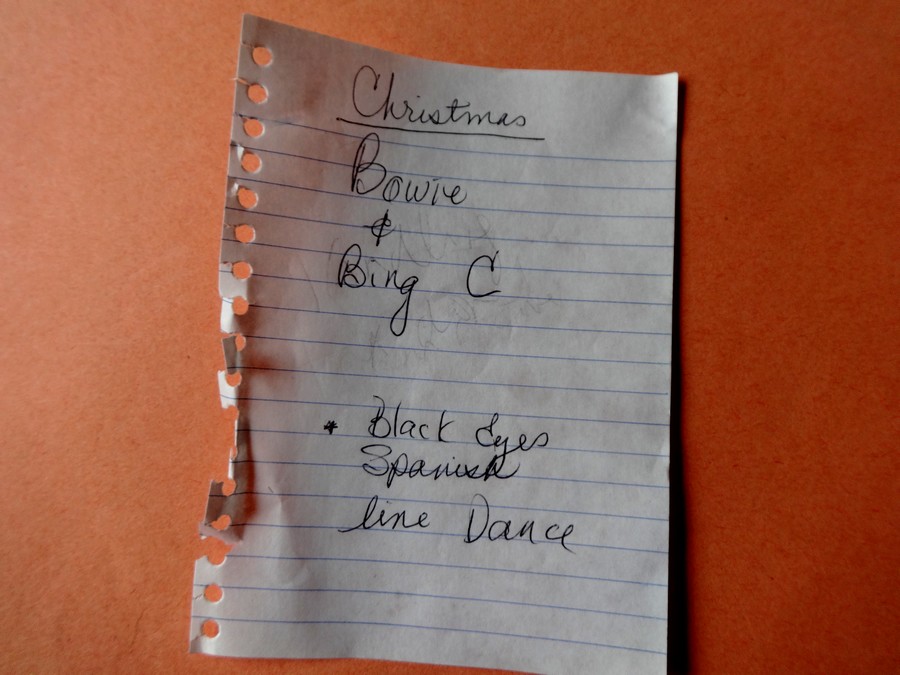 Christmas
Bowie
&
Bing C
* Black Eyes
Spanish
line Dance